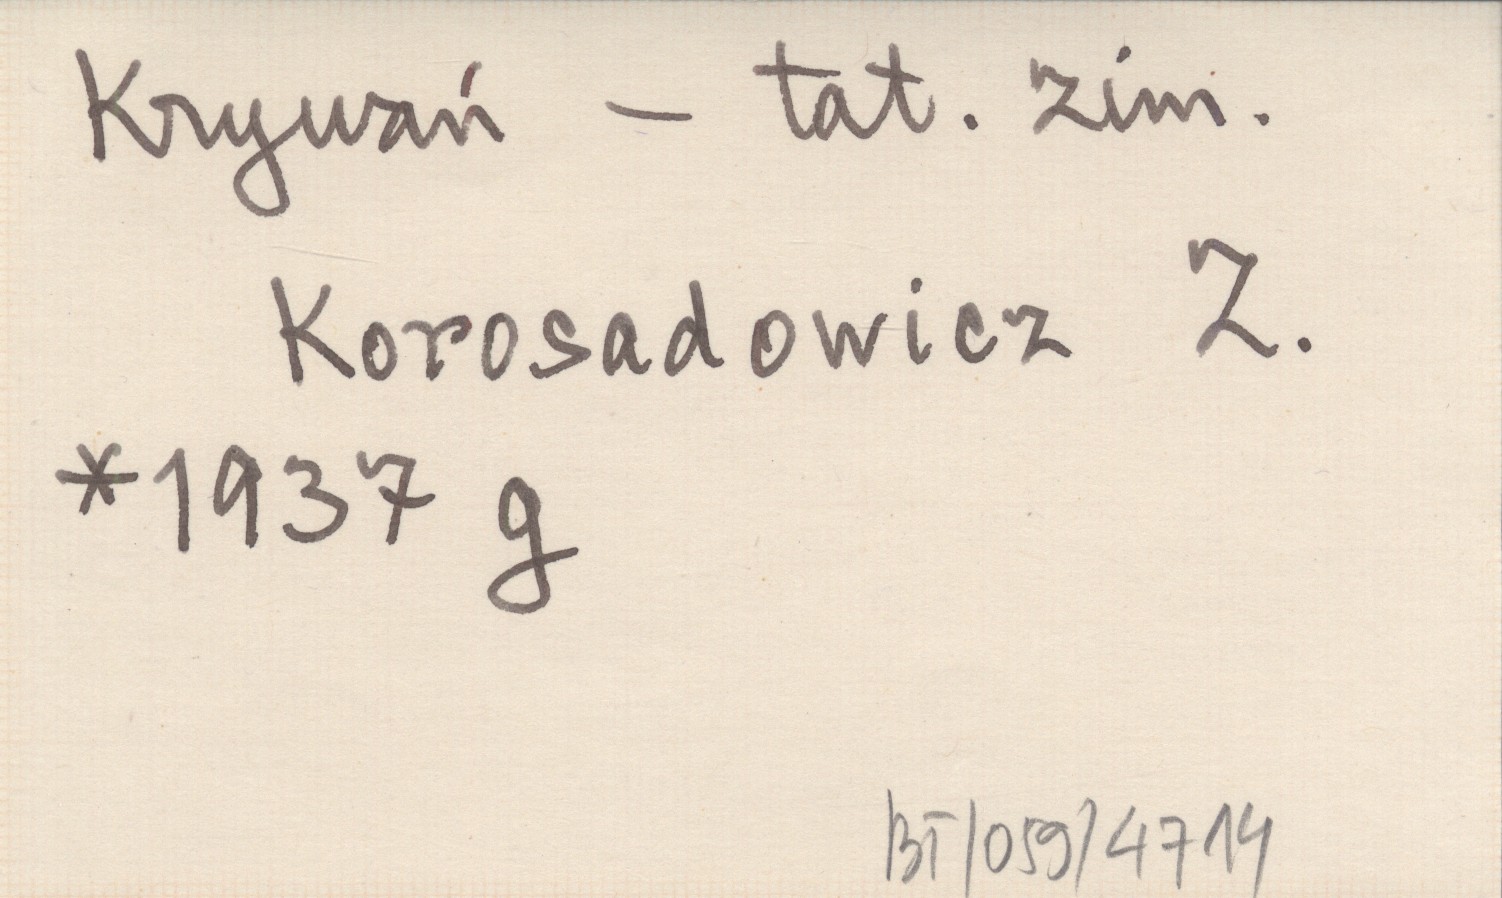 Krywań – tat. zim.
Korosadowicz Z.
*1937 g
BT/059/4714